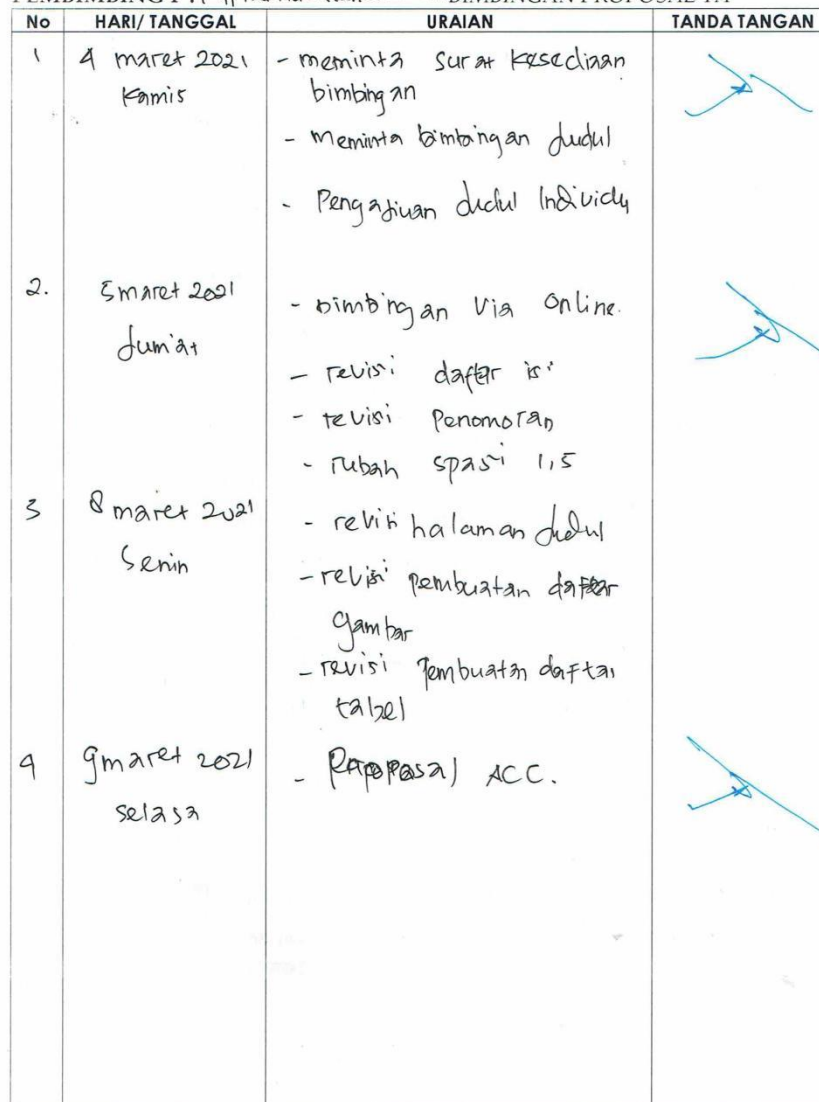 BIMBINGAN PROPOSAL TA
No HARI/ TANGGAL URAIAN TANDA TANGAN
1 4 maret 2021 - meminta surat kesediaan
Kamis bimbingan
- meminta bimbingan Judul
- Pengajuan Judul Individu
2. 5 maret 2021 - bimbingan Via online.
Jum'at
- revisi daftar isi
- revisi Penomoran
- rubah spasi 1,5
3 8 maret 2021 - revisi halaman Judul
Senin - revisi pembuatan daftar
gambar
- revisi Pembuatan daftar
tabel
4 9 maret 2021 - Proposal ACC.
selasa